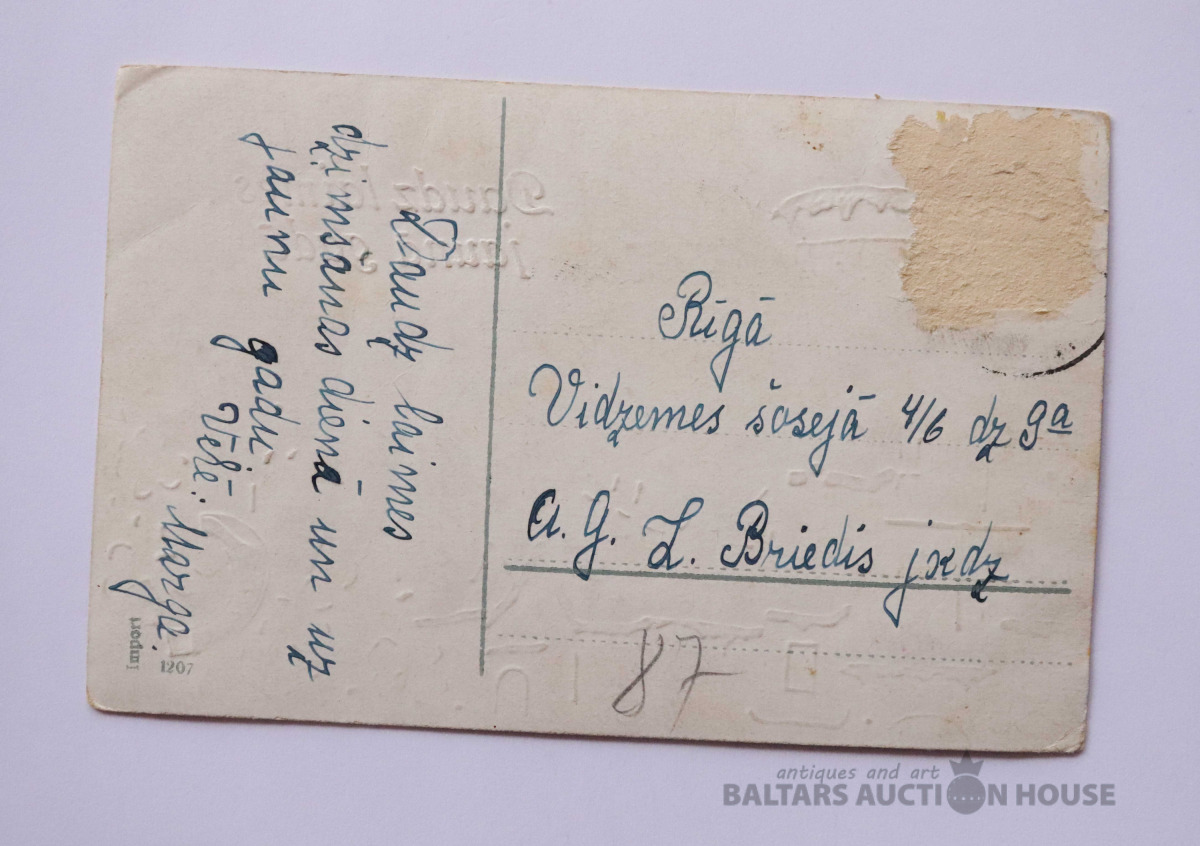 Daudz laimes
dzimšanas dienā un uz
jaunu gadu
Vēlē: Marga.
Import
1207
Rīgā
Vidzemes šosejā 4/6 dz 9a
A. G. L. Briedis jxdz
87
Daudz laimes
jaunā
antiques and art
BALTARS AUCTION HOUSE